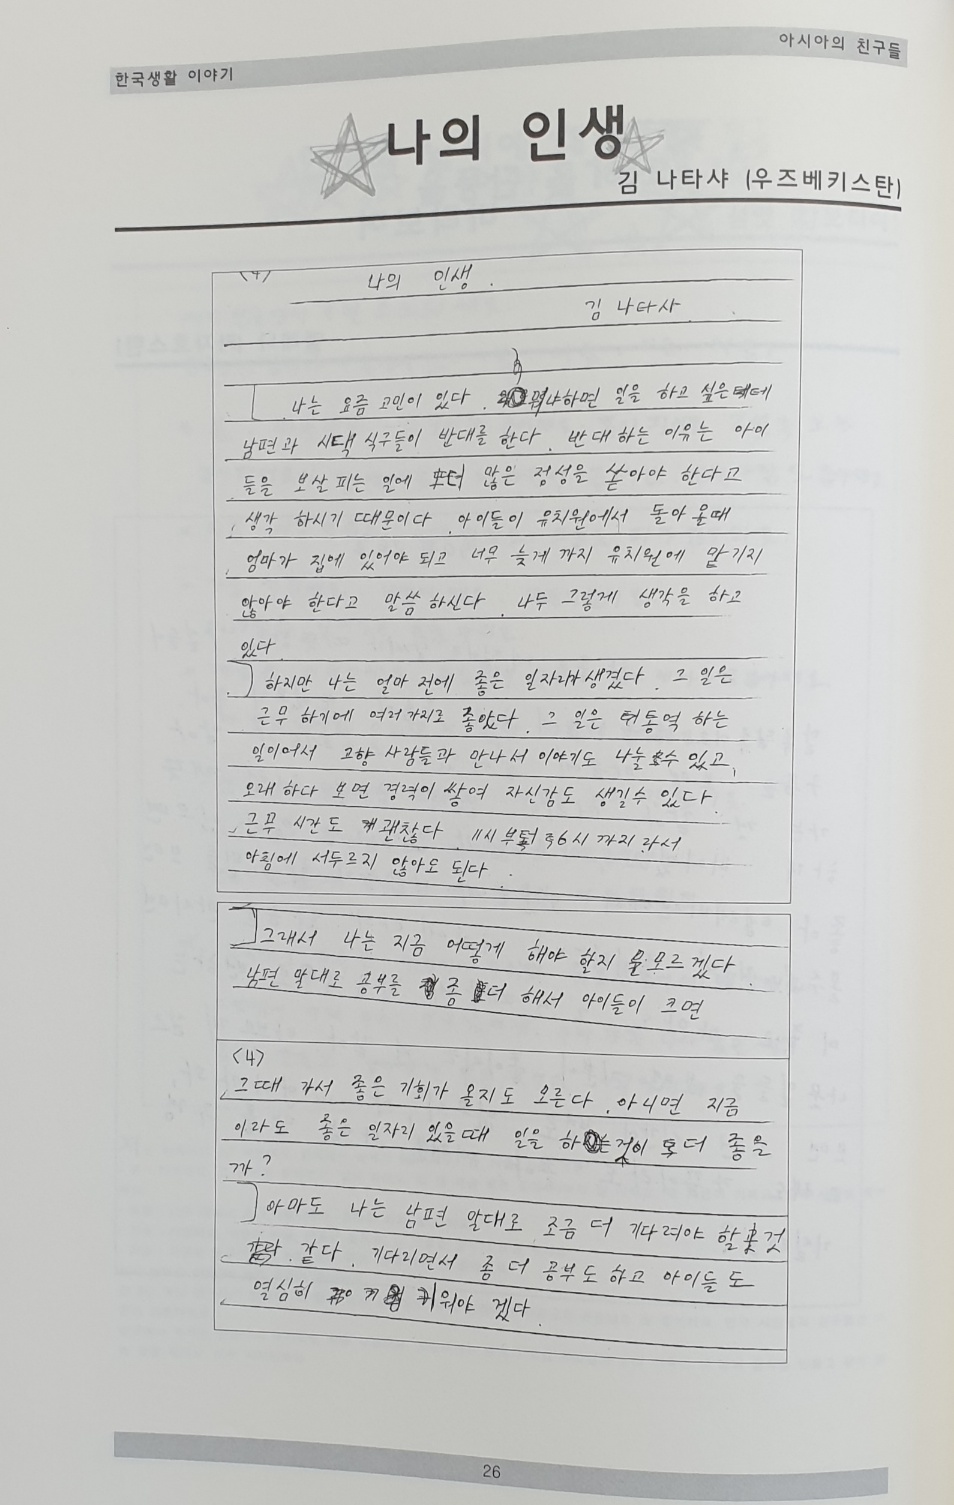 한국생활 이야기
아시아의 친구들
나의 인생
김 나타샤 (우즈베키스탄)
<4>
나의 인생.
김 나타사
나는 요즘 고민이 있다. 왜냐하면 일을 하고 싶은데
남편과 시댁 식구들이 반대를 한다. 반대하는 이유는 아이
들을 보살피는 일에 더 많은 정성을 쏟아야 한다고
생각 하시기 때문이다. 아이들이 유치원에서 돌아올때
엄마가 집에 있어야 되고 너무 늦게 까지 유치원에 맡기지
않아야 한다고 말씀 하신다. 나두 그렇게 생각을 하고
있다.
하지만 나는 얼마 전에 좋은 일자리가 생겼다. 그 일은
근무 하기에 여러가지로 좋았다. 그 일은 통역 하는
일이어서 고향 사람들과 만나서 이야기도 나눌수 있고,
오래하다 보면 경력이 쌓여 자신감도 생길수 있다.
근무 시간도 괜찮다. 11시 부터 6시 까지 라서
아침에 서두르지 않아도 된다.
그래서 나는 지금 어떻게 해야 할지 모르겠다.
남편 말대로 공부를 좀 더 해서 아이들이 크면
<4>
그때 가서 좋은 기회가 올지도 모른다. 아니면 지금
이라도 좋은 일자리 있을때 일을 하는 것이 더 좋을
까?
아마도 나는 남편 말대로 조금 더 기다려야 할 것
같다. 기다리면서 좀 더 공부도하고 아이들도
열심히 키워야 겠다.
26